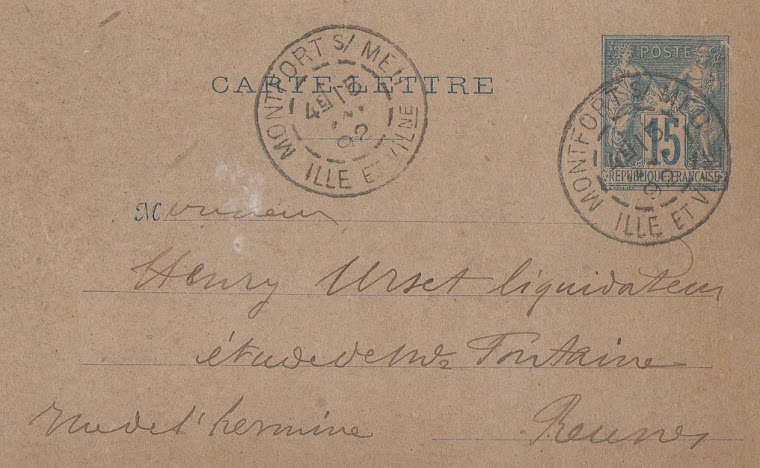 CARTE-LETTRE
POSTE
15
RÉPUBLIQUE FRANÇAISE
MONTFORT S/ MEU
4E
92
ILLE ET VILNE
MONTFORT S/ MEU
4E
92
ILLE ET VI
Monsieur
Henry Urset liquidateur
étude de Me Fontaine
rue de l'hermine Rennes